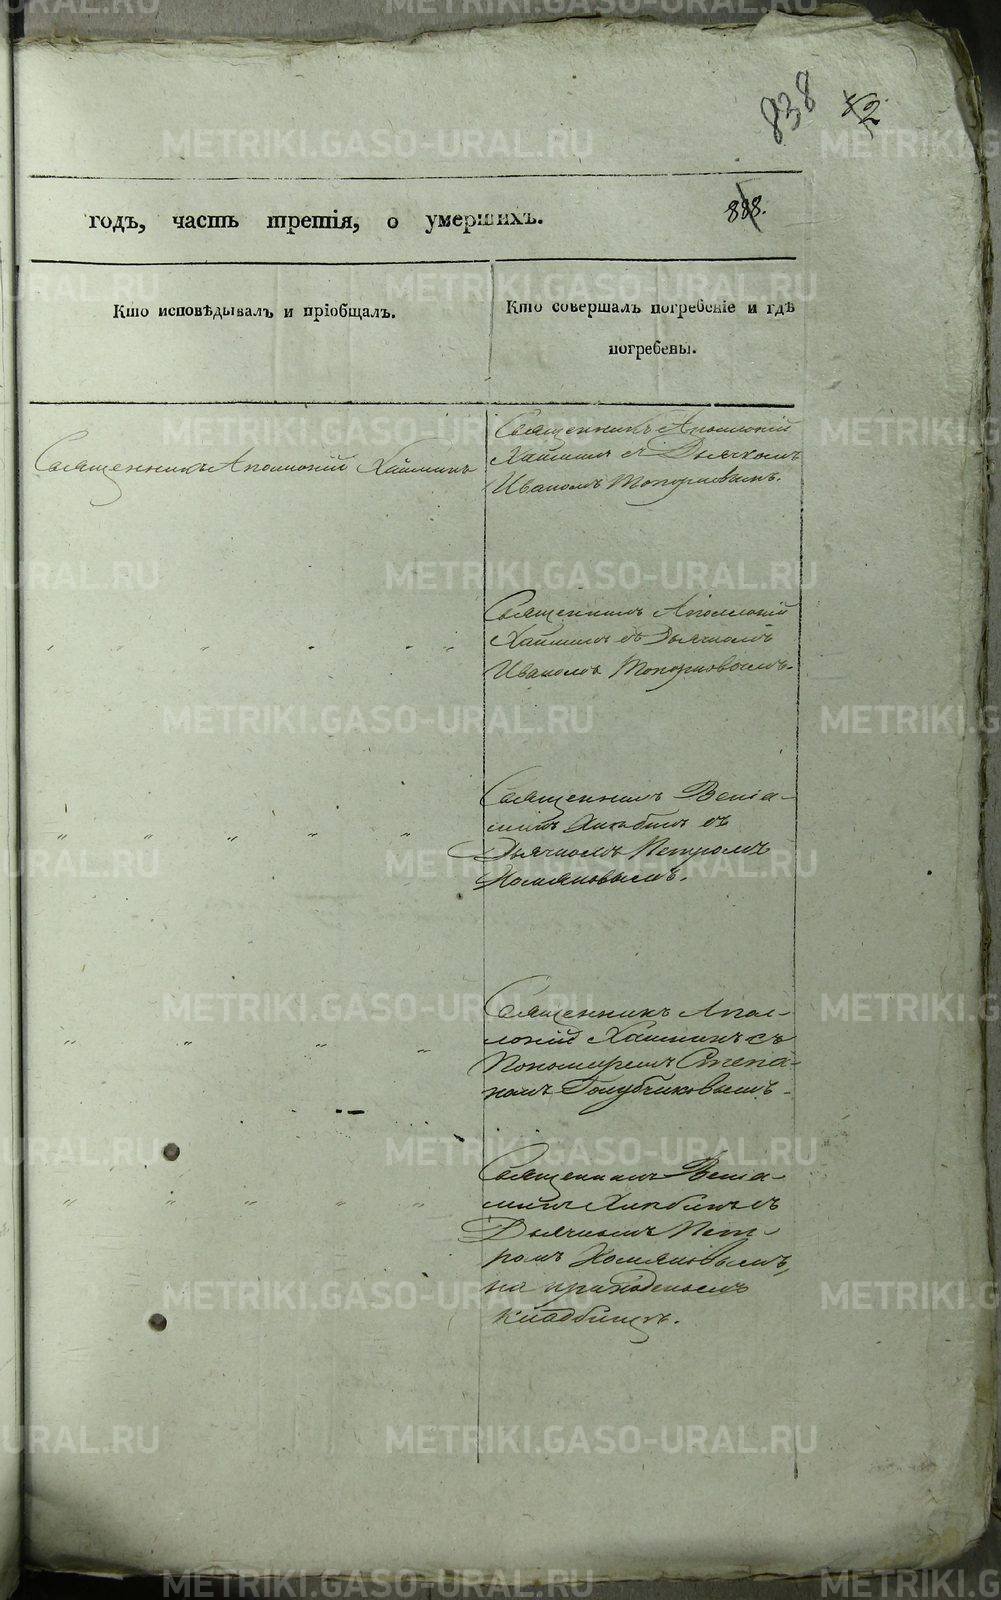 838
888.
годъ, часть третія, о умершихъ.
Кто исповѣдывалъ и пріобщалъ.
Кто совершалъ погребеніе и гдѣ
погребены.
Священникъ Аполлоній Хайминъ
Священникъ Аполлоній
Хайминъ съ Дьячкомъ
Иваномъ Топорковымъ.
Священникъ Аполлоній
Хайминъ съ Дьячкомъ
Иваномъ Топорковымъ.
Священникъ Веніа-
минъ съ
Дьячкомъ Петромъ
Хомяковымъ.
Священникъ Апол-
лоній Хайминъ съ
Пономаремъ Степа-
номъ Голубчиковымъ.
Священникъ Веніа-
минъ съ
Дьячкомъ Пет-
ромъ Хомяковымъ,
на приходскомъ
кладбищѣ.
METRIKI.GASO-URAL.RU